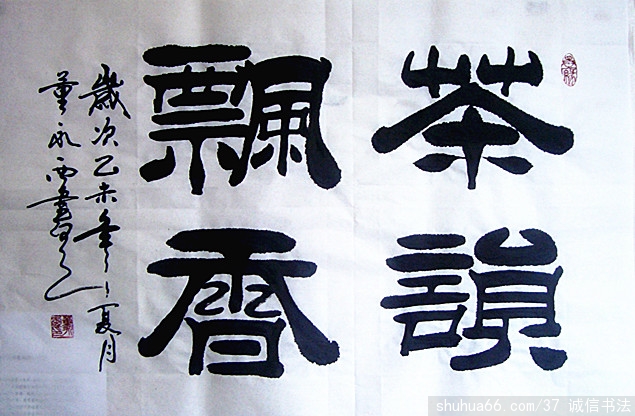 茶韻
飄香
歲次乙未年夏月
董永西書
shuhua66.com/37 诚信书法